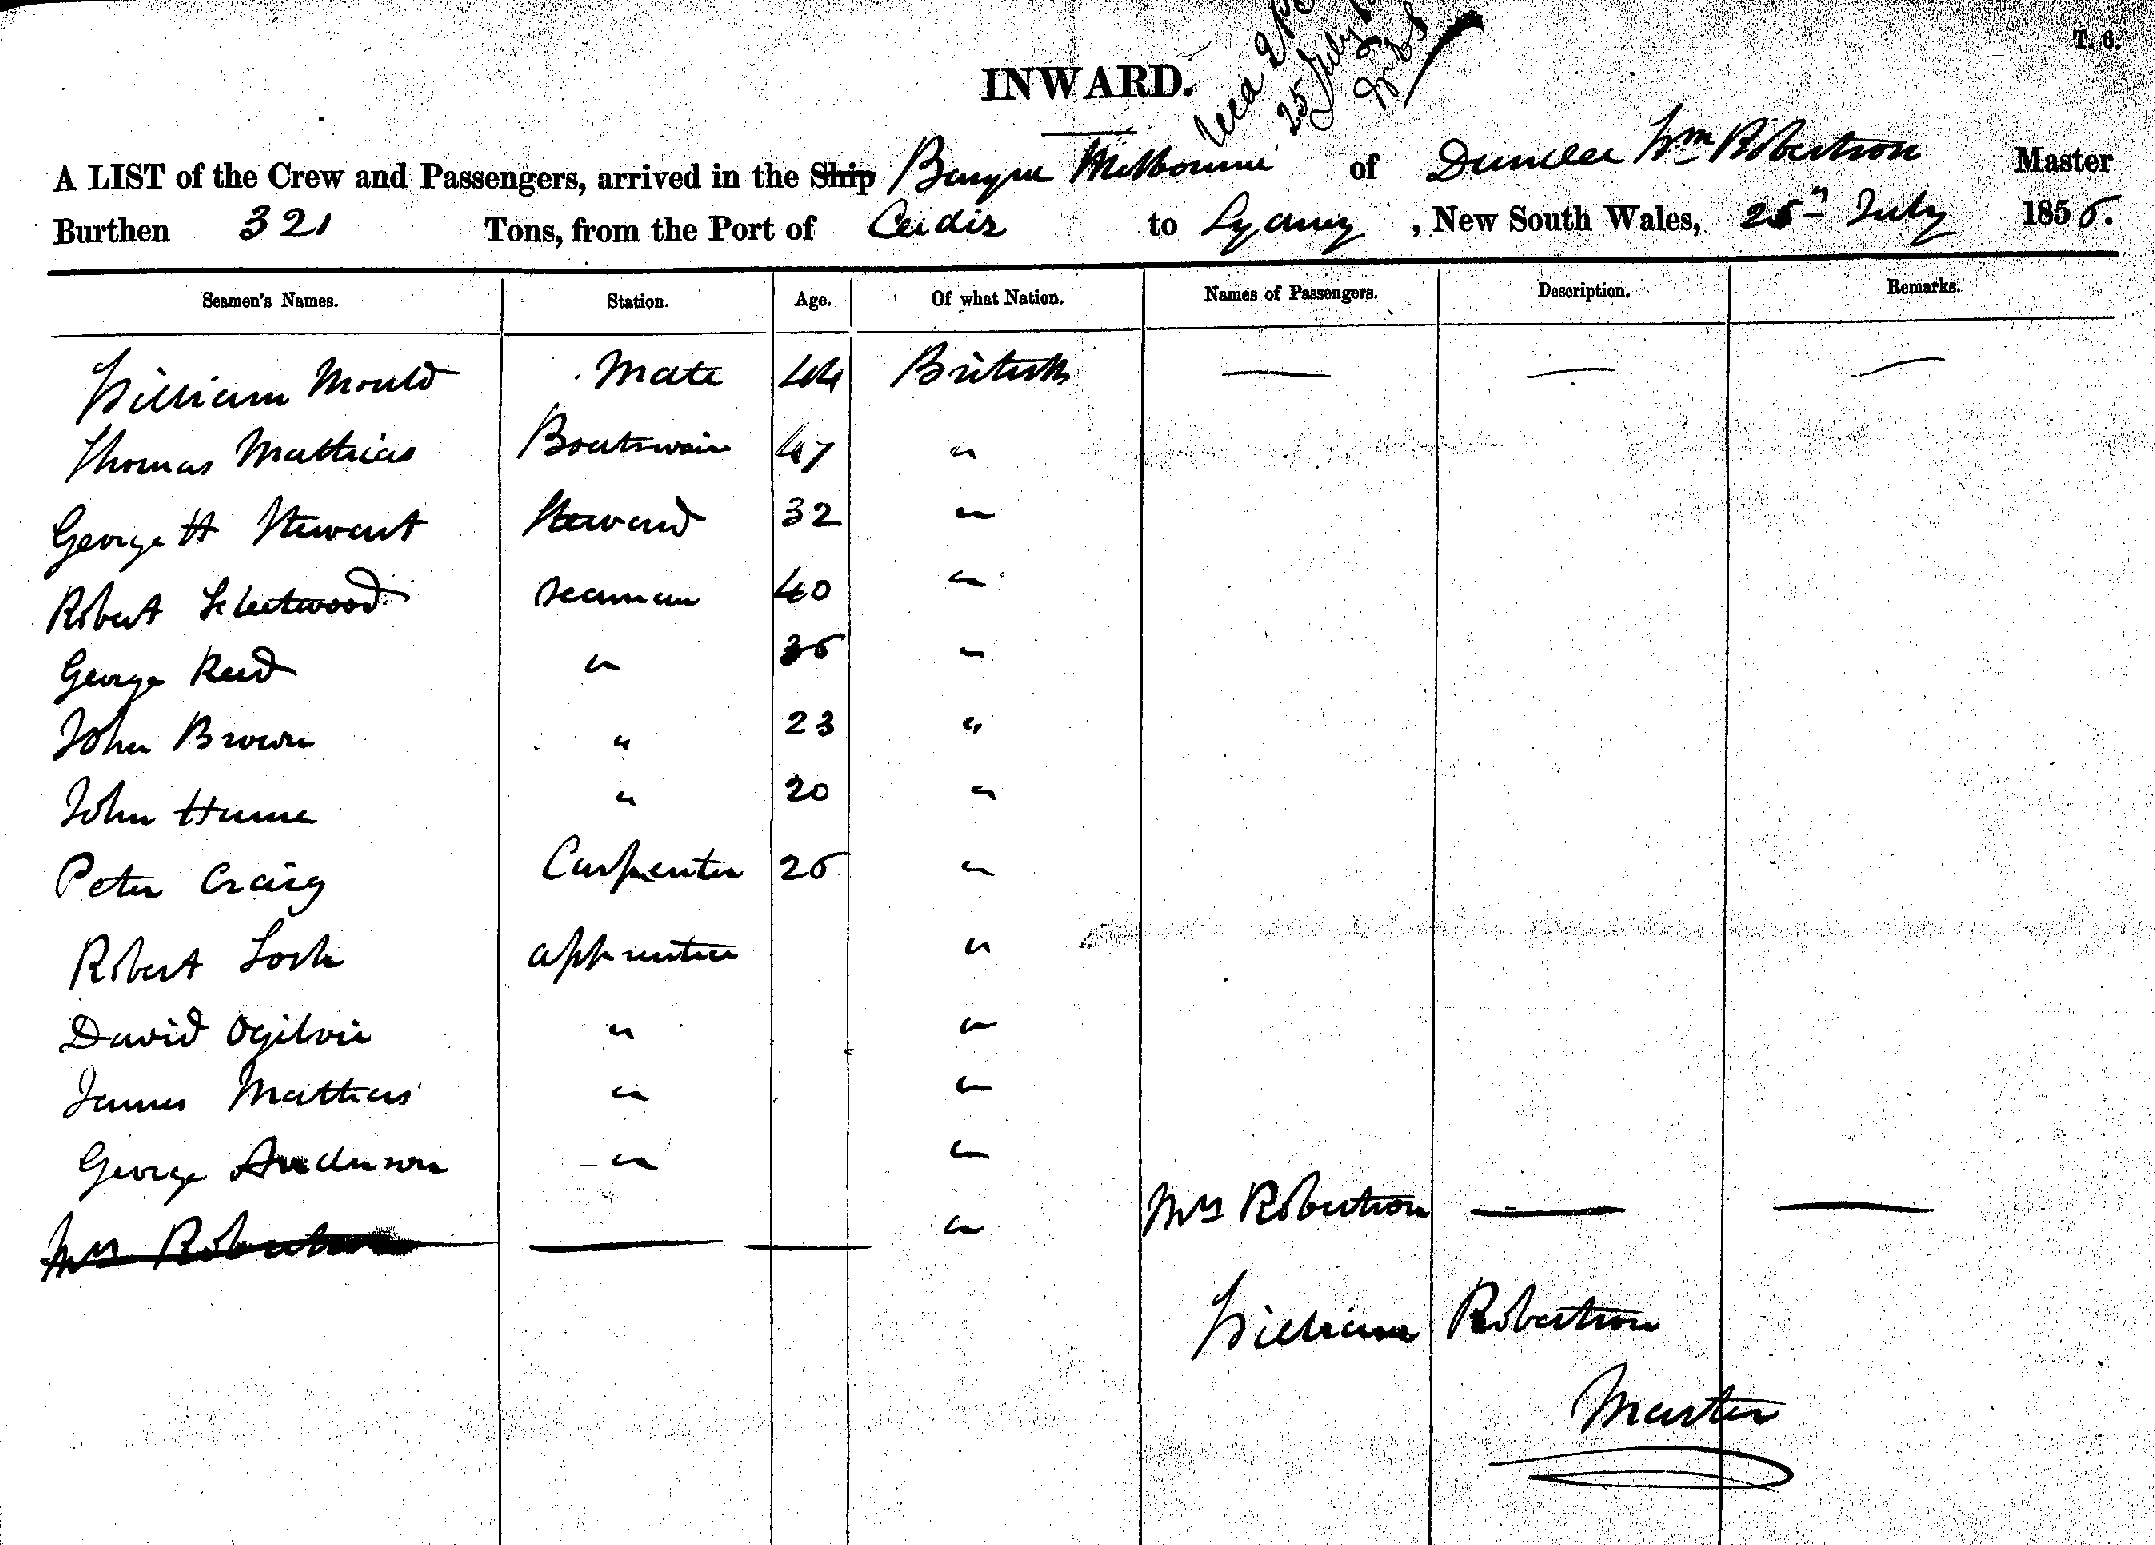 T. 6.
INWARD.
25 July
A LIST of the Crew and Passengers, arrived in the Ship Barque Melbourne of Dundee Wm Robertson Master
Burthen 321 Tons, from the Port of Cadiz to Sydney, New South Wales, 25th July 1856.
Seamen's Names. Station. Age. Of what Nation. Names of Passengers. Description. Remarks.
William Mould Mate 44 British — — —
Thomas Mathias Boatswain 47 "
George H Stewart Steward 32 "
Robert Fleetwood Seaman 40 "
George Reed " 36 "
John Brown " 23 "
John Hume " 20 "
Peter Craig Carpenter 26 "
Robert Lock apprentice "
David Ogilvie " "
James Mathias " "
George Anderson " "
Mrs Robertson — — " Mrs Robertson — —
William Robertson
Master